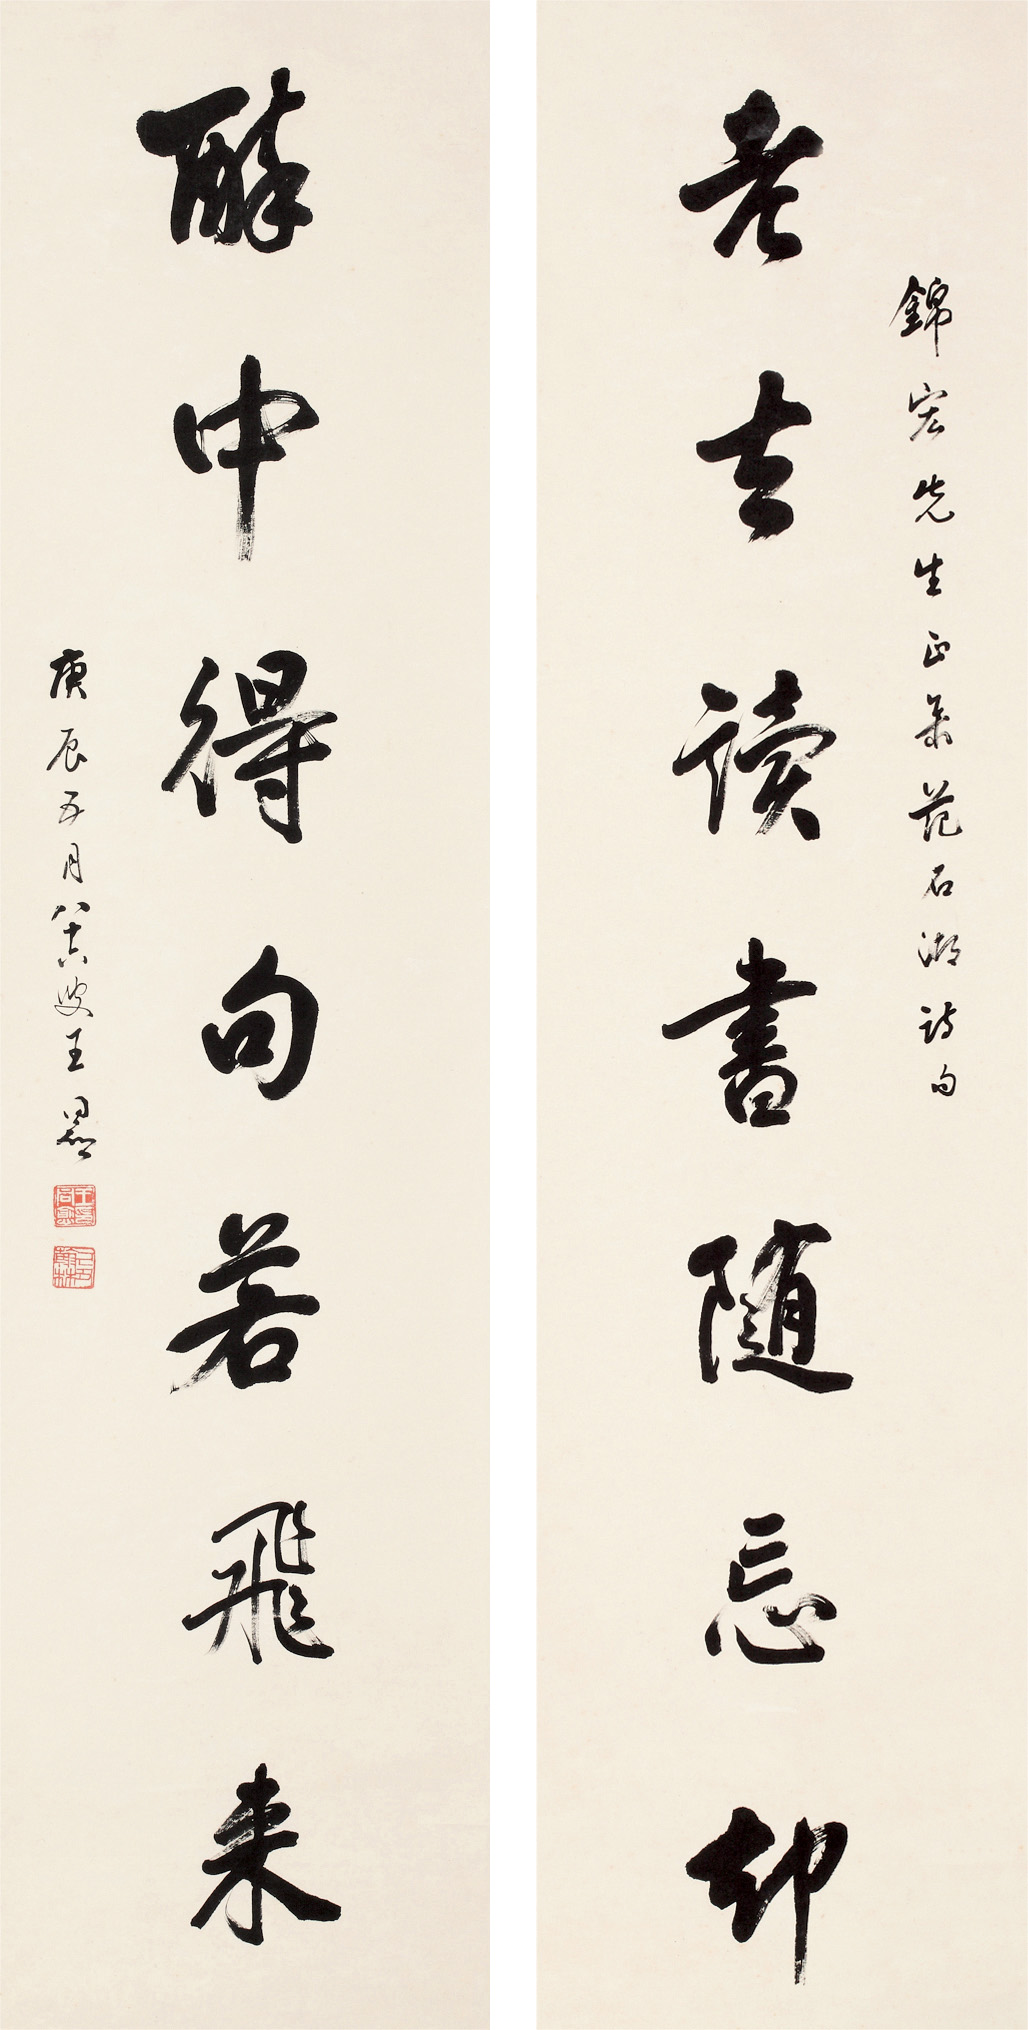 錦宏先生正 集范石湖詩句
老去讀書隨忘却
醉中得句若飛來
庚辰五月八十六叟王同愈
己丑翰林